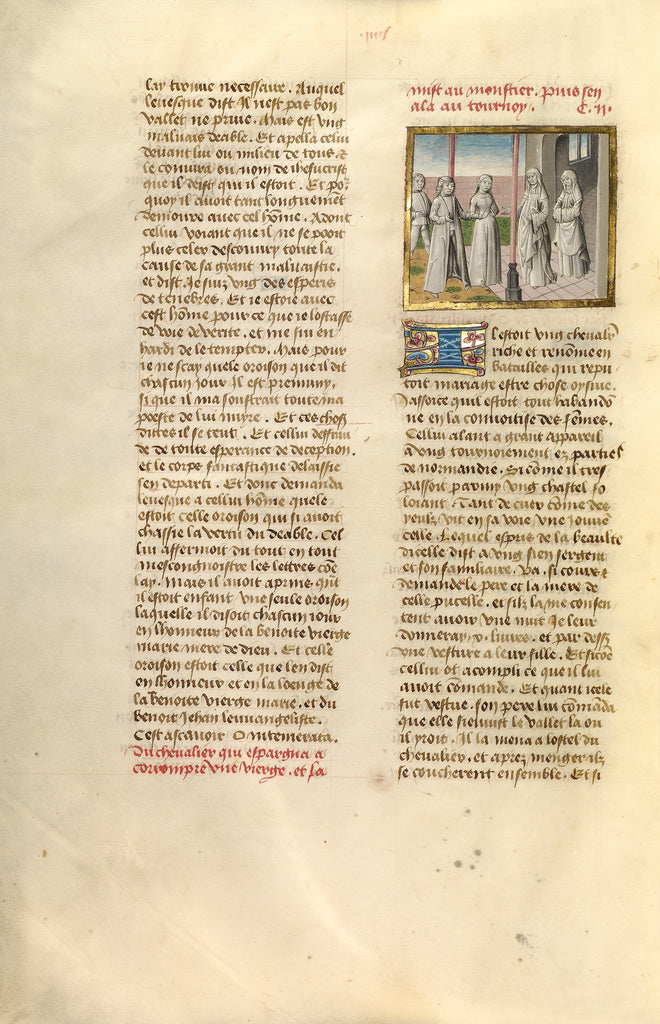 lay trouue necessaire. Auquel
leuesque dist. Il nest pas bon
vallet ne priue. Mais est vng
maluais deable. Et apella celui
deuant lui ou milieu de tous. &
le coniura ou nom de ihesucrist
que il deist qui il estoit. Et po᷑
quoy il auoit tant longuement
demoure auec cel hõme. Adont
cellui voiant que il ne se pooit
plus celer descouury toute la
cause de sa grant maluaistie.
et dist. Je suiz vng des esperis
de tenebres. Et ie estoie auec
cest hõme pour ce que ie lostasse
de voie de verite. et me sui en
hardi de le tempter. Mais pour
ie ne scay quele oroison que il dit
chascun Jour Il est premuny.
si que il ma soustrait toute ma
poeste de lui nuyre. Et ces choses
dittes il se teut. Et cellui
de de toute esperance de deception.
et le corps fantastique delaissie
sen departi. Et donc demanda
leuesque a cellui hõme quele
estoit celle oroison qui si auoit
chassie la vertu du deable. Cel
lui affermoit du tout en tout
mescongnoistre les lettres cõe
lay. mais il auoit aprins quãt
il estoit enfant vne seule oroison
laquelle il disoit chascun iour
en lhonneur de la benoite vierge
marie mere de dieu. Et celle
oroison estoit celle que len dist
en lhonneur et en la loenge de
la benoite vierge marie. et du
benoit Jehan leuuangeliste.
Cest ascauoir O intemerata.
Du cheualier qui espargna a
corrompre vne vierge. et la
mist au monstier. puis sen
ala au tournoy. C. ii.
Il estoit vng cheualier
riche et renõme en
batailles qui repu
toit mariage estre chose oysiue.
Jassoice quil estoit tout habandõ
ne en la conuoitise des fẽmes.
Cellui alant a grant appareil
a vng tournoiement ez parties
de normandie. Si cõme il tres
passoit parmy vng chastel fo
loiant. Tant de cuer cõme des
yeulz vit en sa voie vne Jouuẽ
celle. Lequel espris de la beaulte
dicelle dist a vng sien sergent
et son familiaire. Va. si cours &
demande le pere et la mere de
celle pucelle. et silz la me consen
tent auoir vne nuit Je leur
donneray .v. liures. et par dess9
vne vesture a leur fille. Et sicõe
cellui ot acompli ce que il lui
auoit cõmande. Et quant icele
fut vestue. son pere lui cõmãda
que elle sieuuist le vallet la ou
il yroit. Il la mena a lostel du
cheualier. et aprez menger ilz
se coucherent ensemble. Et si